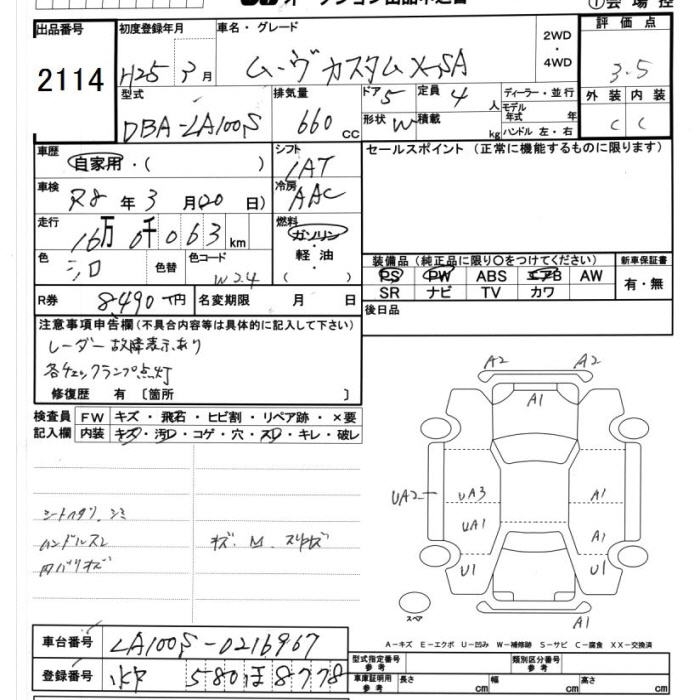 オークション出品申込書
①会場控
出品番号
2114
初度登録年月
H25 3月
車名・グレード
ムーヴカスタム X-SA
2WD・4WD
評価点
3.5
外装 内装
C C
型式
DBA-LA100S
排気量
660 cc
ドア 5
形状 W
定員 4 人
積載 kg
ディーラー・並行
モデル年式 年
ハンドル 左・右
車歴
自家用・( )
シフト
LAT
セールスポイント (正常に機能するものに限ります)
車検
R8年3月(20日)
冷房
AAC
走行
16万0千063km
燃料
ガソリン・軽油・( )
色
シロ
色替
色コード
W24
装備品 (純正品に限り○をつけてください)
新車保証書
PS PW ABS エアB AW
SR ナビ TV カワ
有・無
R券
8,490円
名変期限 月 日
後日品
注意事項申告欄(不具合内容等は具体的に記入して下さい)
レーダー故障表示あり
各チェックランプ点灯
修復歴 有〔箇所 〕
検査員記入欄
FW キズ・飛石・ヒビ割・リペア跡・×要
内装 キズ・汚レ・コゲ・穴・スレ・キレ・破レ
シートヘタリ、シミ
ハンドルスレ
内バリキズ
A2 A2
A1
UA2 UA3 A1
UA1 A1
U1 U1
A1
スペア
A-キズ E-エクボ U-凹み W-補修跡 S-サビ C-腐食 XX-交換済
車台番号
LA100S-0216967
登録番号
580ほ8778
型式指定番号 参考
類別区分番号 参考
車庫証明用 参考
長さ cm
幅 cm
高さ cm